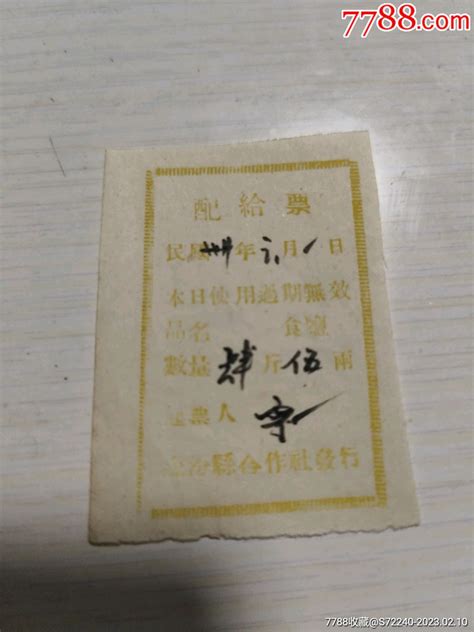 7788.com
配給票
民國卅年 月 日
本日使用過期無效
品名 食鹽
數量肆斤伍兩
人
縣合作社發行
7788收藏@S72240-2023.02.10